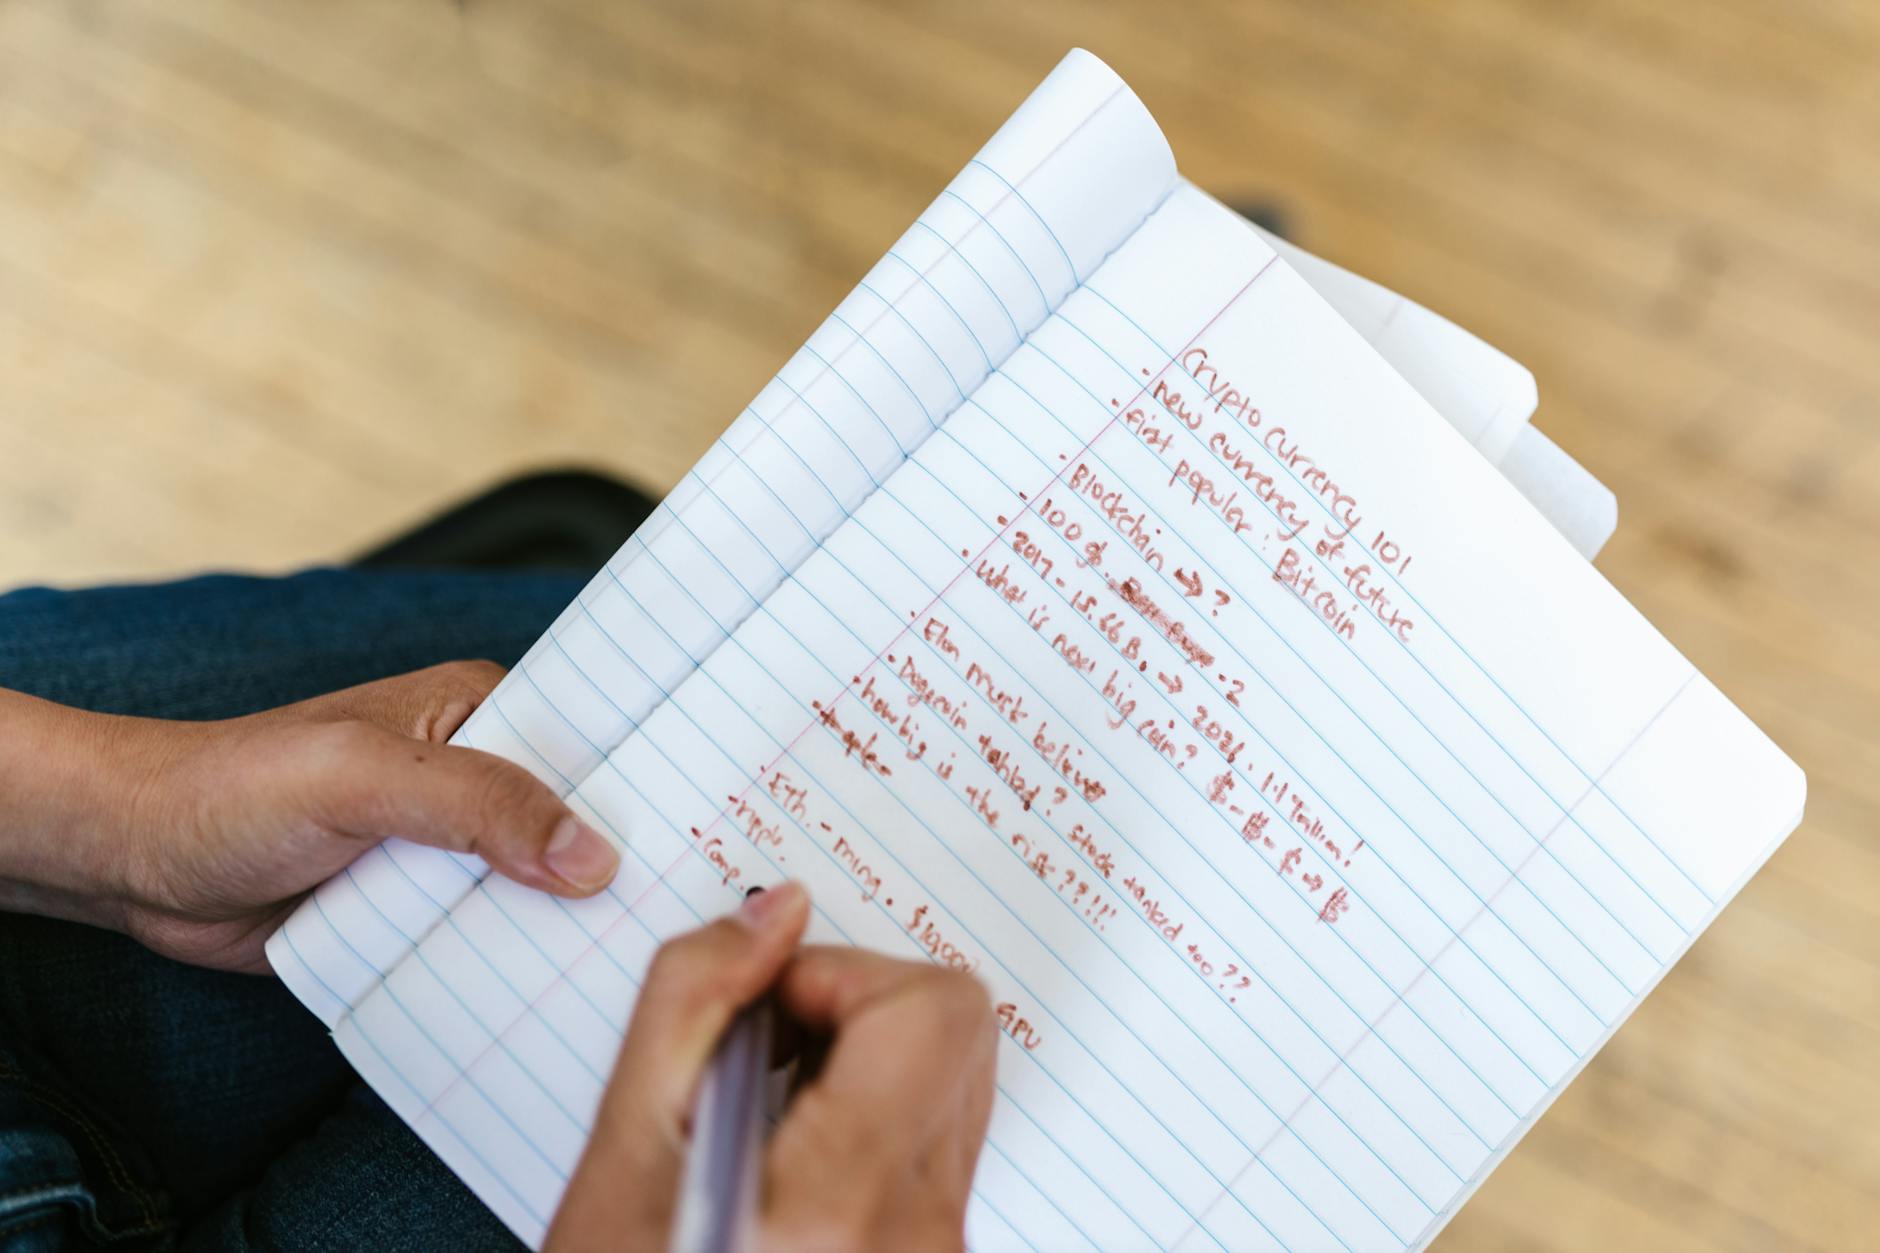 Crypto Currency 101
- new currency of future
- First popular : Bitcoin
- Blockchain → ?
- 100 $. -2
- 2017 - 15.66 B. → 2021. 1.1 Trillion!
- What is next big coin? $-$-$→$
- Elon musk believe
- Dogecoin tanked? stock tanked too??
- how big is the risk????!!!
- Eth. - ming. $1,900 GPU
- ripple.
- Comp.